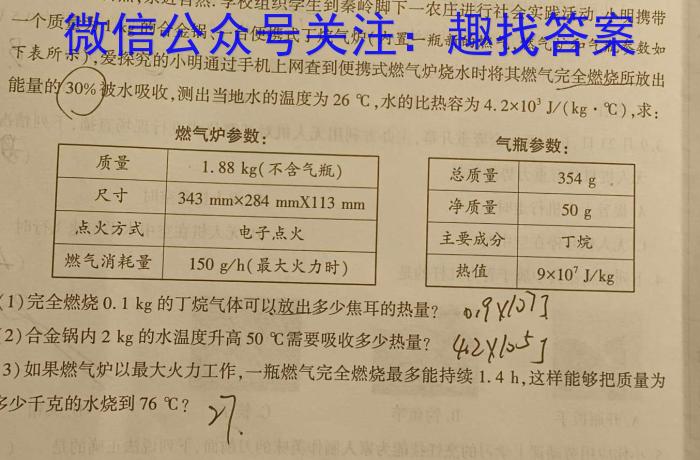 学校组织学生到秦岭脚下一农庄进行社会实践活动,小明携带
微信公众号关注：趣找答案
一个质
下表所示),爱探究的小明通过手机上网查到便携式燃气炉烧水时将其燃气完全燃烧所放出
能量的30%被水吸收,测出当地水的温度为26 ℃,水的比热容为4.2×10³ J/(kg·℃),求:
燃气炉参数:
质量 1.88 kg(不含气瓶)
尺寸 343 mm×284 mmX113 mm
点火方式 电子点火
燃气消耗量 150 g/h(最大火力时)
气瓶参数:
总质量 354 g
净质量 50 g
主要成分 丁烷
热值 9×10⁷ J/kg
(1)完全燃烧0.1 kg的丁烷气体可以放出多少焦耳的热量? 0.9×10⁷J
(2)合金锅内2 kg的水温度升高50 ℃需要吸收多少热量? 4.2×10⁵J
3)如果燃气炉以最大火力工作,一瓶燃气完全燃烧最多能持续1.4 h,这样能够把质量为
多少千克的水烧到76 ℃? 27.